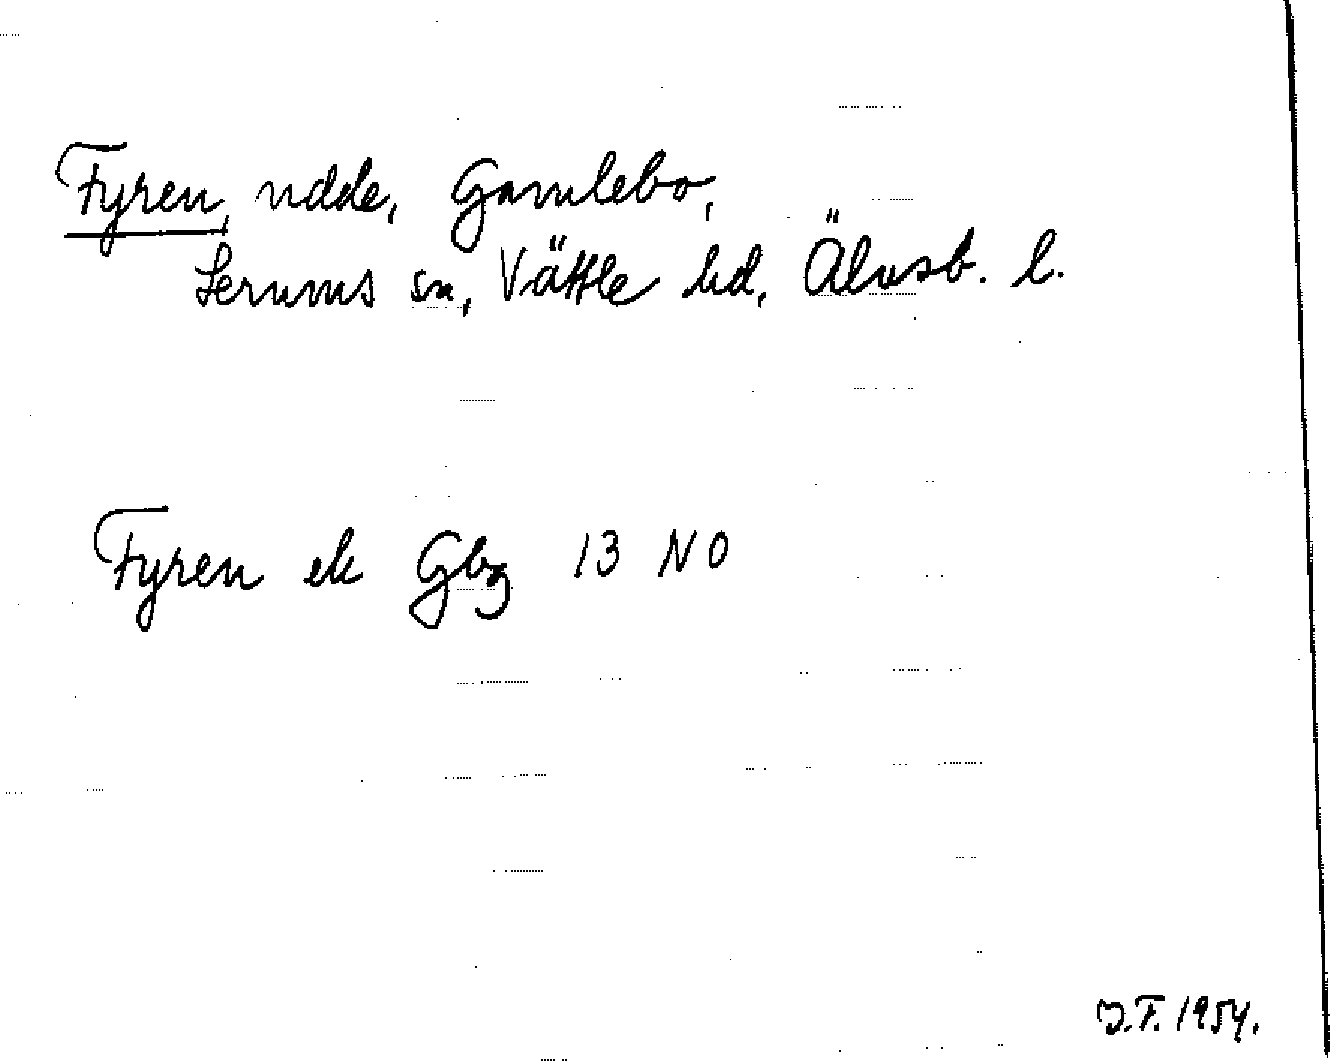 Fyren, udde, Gamlebo,
Lerums sn, Vättle hd, Älvsb. l.
Fyren ek Gbg 13 NO
I.F. 1954.